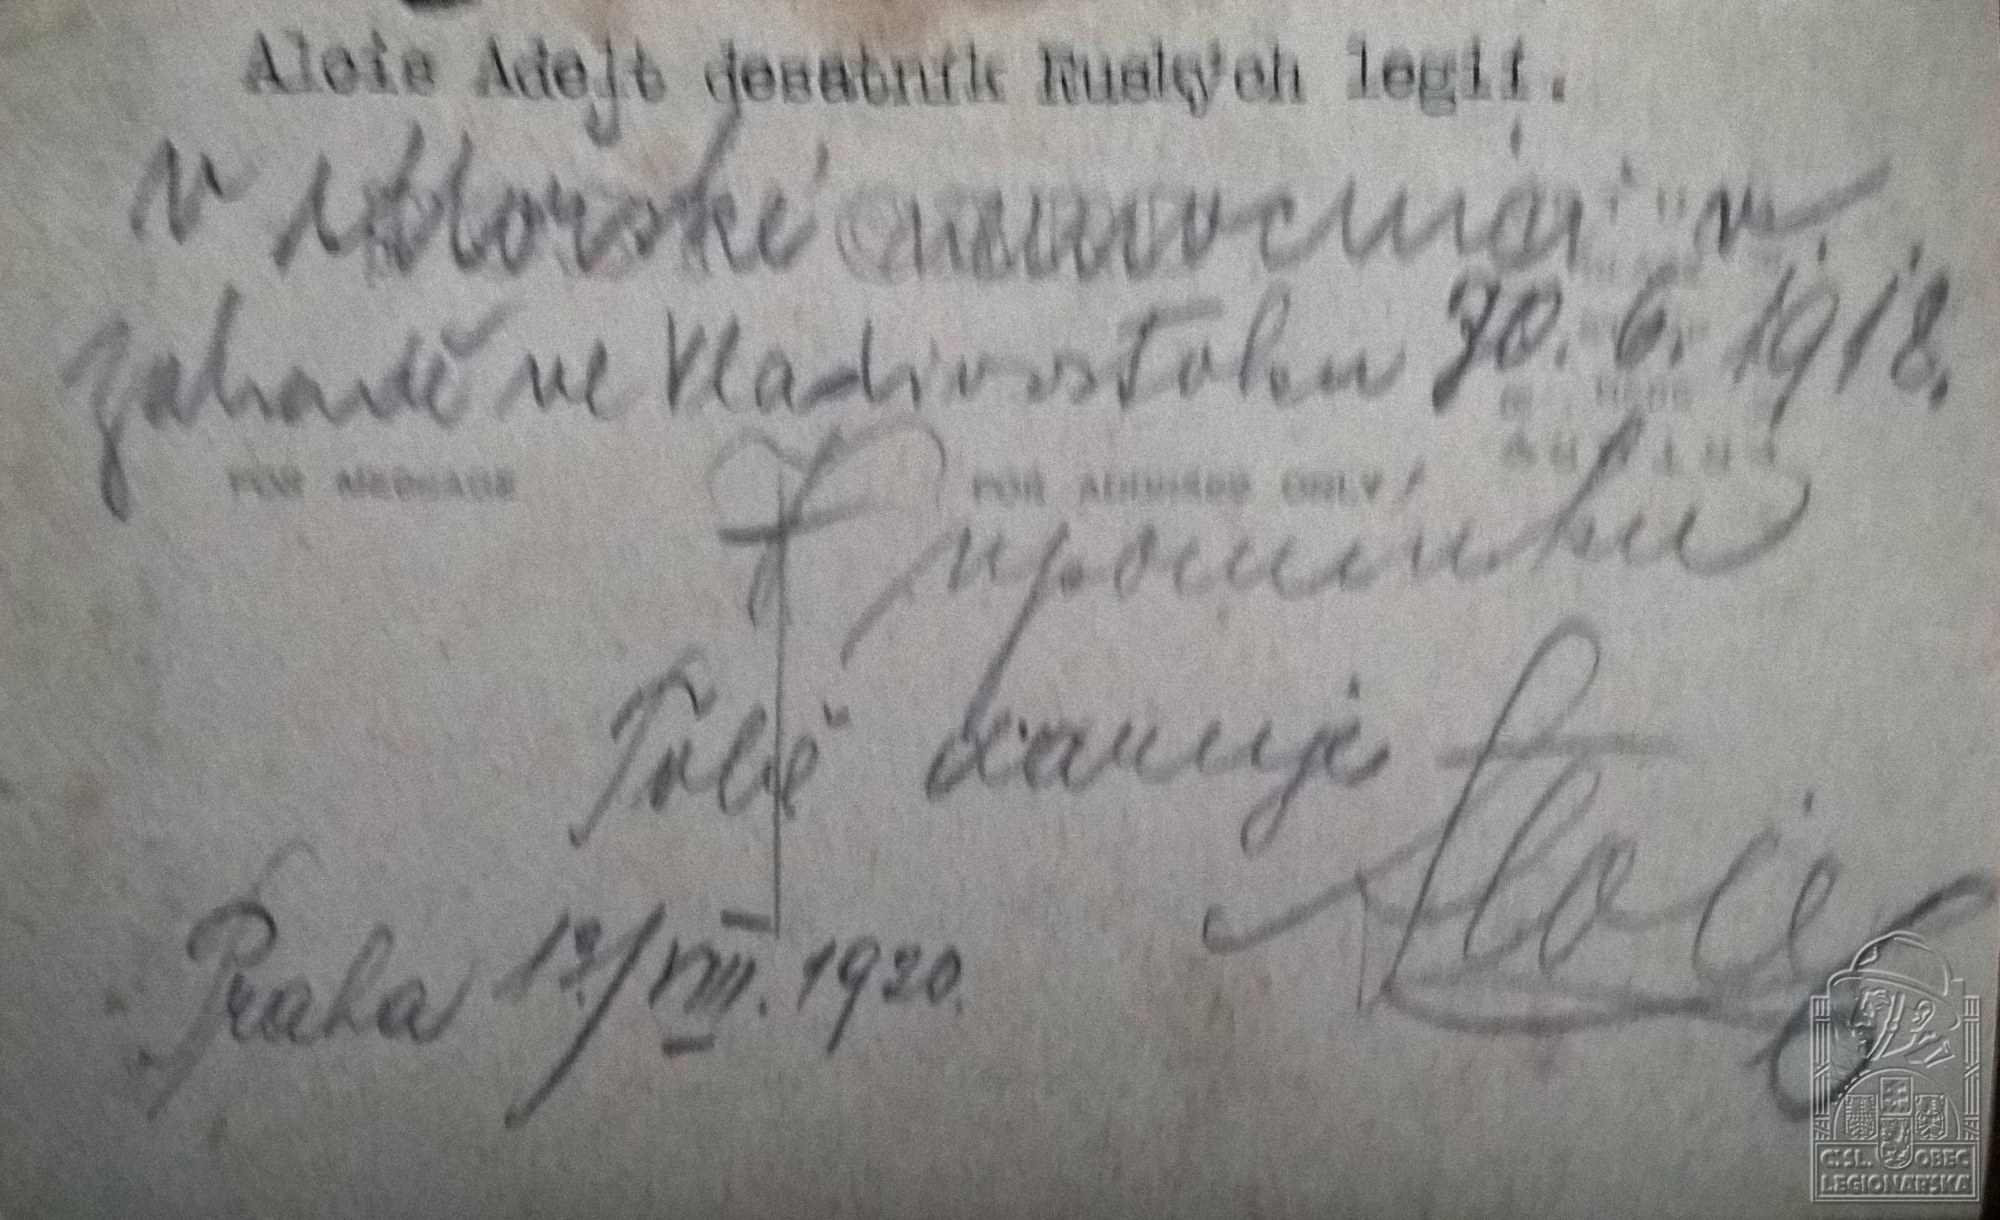 Alois Adejt desátník Ruských legií.
v námořské nemocnici v
zahradě ve Vladivostoku 30. 6. 1918.
FOR MESSAGE
FOR ADDRESS ONLY
K upomínku
Tobě daruje
Alois
Praha 12/VIII. 1920.
Č.SL. OBEC
LEGIONÁŘSKÁ